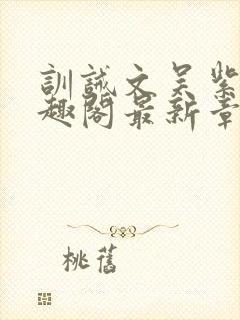 訓誡文吴紫
趣閣最新章
桃舊